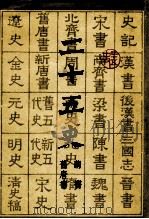 史記 漢書 後漢書 三國志 晉書
宋書 南齊書 梁書 陳書 魏書
北齊書 周書
舊唐書 新唐書 舊五代史 新五代史 宋史
遼史 金史 元史 明史 清史稿
二十五史
舊唐書